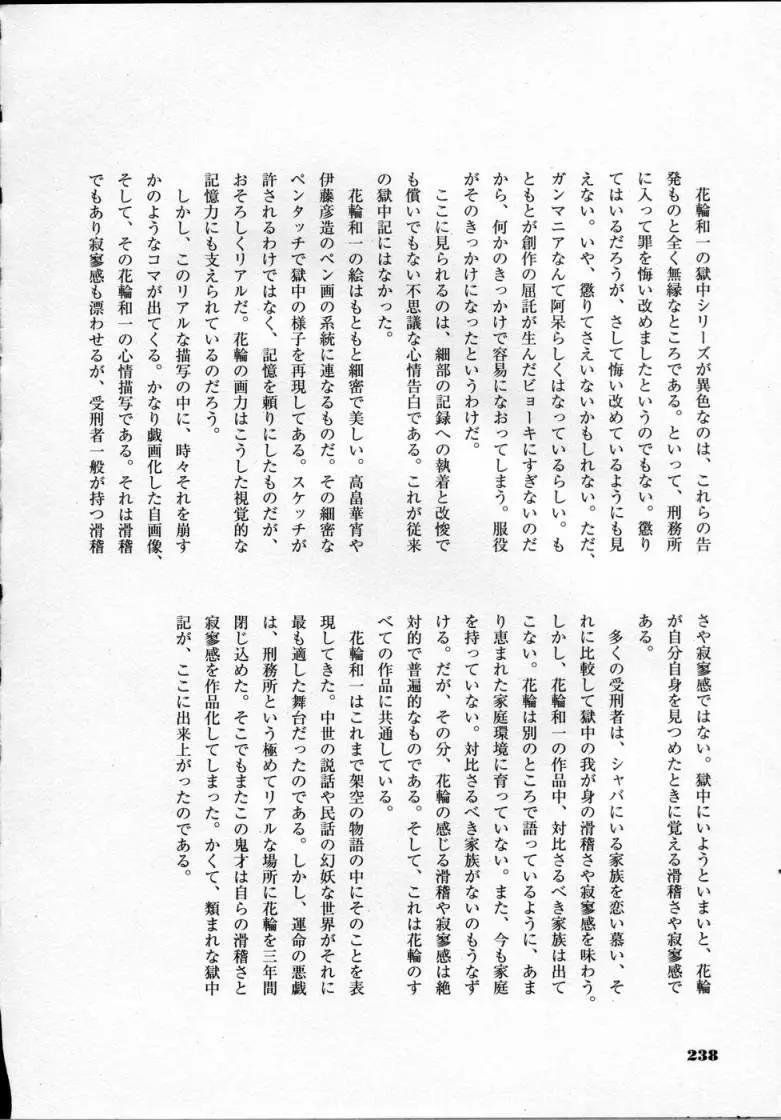 花輪和一の獄中シリーズが異色なのは、これらの告
発ものと全く無縁なところである。といって、刑務所
に入って罪を悔い改めましたというのでもない。懲り
てはいるだろうが、さして悔い改めているようにも見
えない。いや、懲りてさえいないかもしれない。ただ、
ガンマニアなんて阿呆らしくはなっているらしい。も
ともとが創作の屈託が生んだビョーキにすぎないのだ
から、何かのきっかけで容易になおってしまう。服役
がそのきっかけになったというわけだ。
ここに見られるのは、細部の記録への執着と改悛で
も償いでもない不思議な心情告白である。これが従来
の獄中記にはなかった。
花輪和一の絵はもともと細密で美しい。高畠華宵や
伊藤彦造のペン画の系統に連なるものだ。その細密な
ペンタッチで獄中の様子を再現してある。スケッチが
許されるわけではなく、記憶を頼りにしたものだが、
おそろしくリアルだ。花輪の画力はこうした視覚的な
記憶力にも支えられているのだろう。
しかし、このリアルな描写の中に、時々それを崩す
かのようなコマが出てくる。かなり戯画化した自画像、
そして、その花輪和一の心情描写である。それは滑稽
でもあり寂寥感も漂わせるが、受刑者一般が持つ滑稽
さや寂寥感ではない。獄中にいようといまいと、花輪
が自分自身を見つめたときに覚える滑稽さや寂寥感で
ある。
多くの受刑者は、シャバにいる家族を恋い慕い、そ
れに比較して獄中の我が身の滑稽さや寂寥感を味わう。
しかし、花輪和一の作品中、対比さるべき家族は出て
こない。花輪は別のところで語っているように、あま
り恵まれた家庭環境に育っていない。また、今も家庭
を持っていない。対比さるべき家族がないのもうなず
ける。だが、その分、花輪の感じる滑稽や寂寥感は絶
対的で普遍的なものである。そして、これは花輪のす
べての作品に共通している。
花輪和一はこれまで架空の物語の中にそのことを表
現してきた。中世の説話や民話の幻妖な世界がそれに
最も適した舞台だったのである。しかし、運命の悪戯
は、刑務所という極めてリアルな場所に花輪を三年間
閉じ込めた。そこでもまたこの鬼才は自らの滑稽さと
寂寥感を作品化してしまった。かくて、類まれな獄中
記が、ここに出来上がったのである。
238